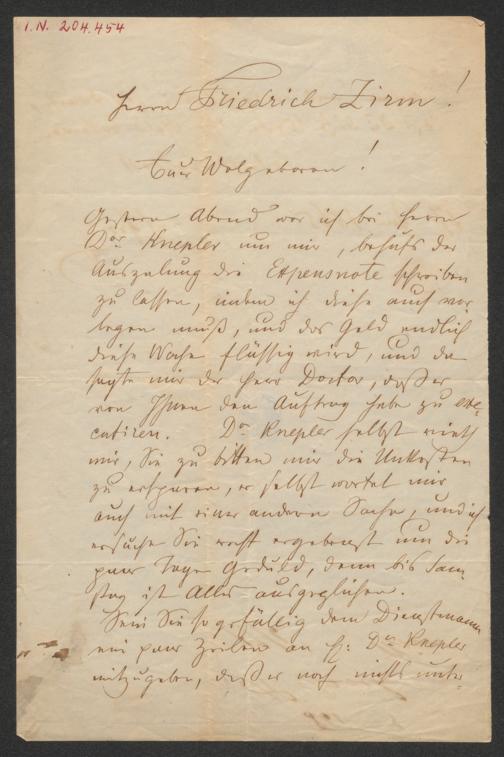 I.N. 204.454
Herrn Friedrich Zirm!
Euer Wolgeboren!
Gestern Abend war ich bei Herrn
Dor Knepler um mir, behufs der
Auszalung die Expensnote schreiben
zu lassen, indem ich diese auch vor-
legen muß, und das Geld endlich
diese Woche flüssig wird, und da
sagte mir der Herr Doctor, daß er
von Ihnen den Auftrag habe zu exe-
cutiren. Dr Knepler selbst rieth
mir, Sie zu bitten mir die Unkosten
zu ersparen, er selbst wartet mir
auch mit einer andern Sache, und ich
ersuche Sie recht ergebenst um die
paar Tage Geduld, denn bis Sam-
stag ist Alles ausgeglichen.
Sein Sie so gefällig dem Dienstmann
ein paar Zeilen an H: Dr Knepler
mitzugeben, daß er noch nichts unter-